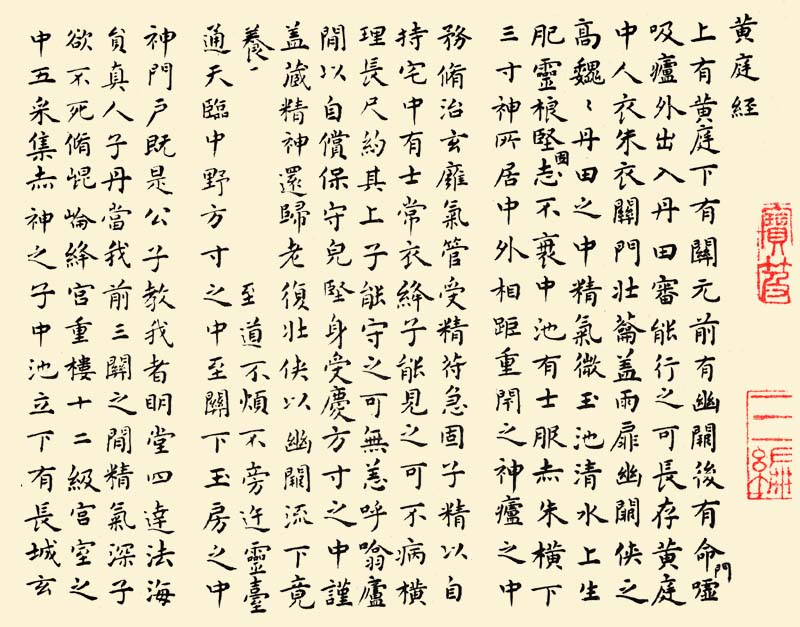 黄庭經
上有黄庭下有關元前有幽闕後有命門噓
吸廬外出入丹田審能行之可長存黄庭
中人衣朱衣關門壯籥盖兩扉幽闕俠之
髙巍〻丹田之中精氣微玉池清水上生
肥靈根堅固志不衰中池有士服赤朱橫下
三寸神所居中外相距重閇之神廬之中
務脩治玄廱氣管受精苻急固子精以自
持宅中有士常衣絳子能見之可不病橫
理長尺約其上子能守之可無恙呼噏廬
閒以自償保守皃堅身受慶方寸之中謹
盖蔵精神還歸老復壯俠以幽闕流下竟
養 至道不煩不旁迕靈臺
通天臨中野方寸之中至關下玉房之中
神門户既是公子教我者眀堂四達法海
貟真人子丹當我前三關之閒精氣深子
欲不死脩崐崘絳宫重樓十二級宫室之
中五采集赤神之子中池立下有長城玄